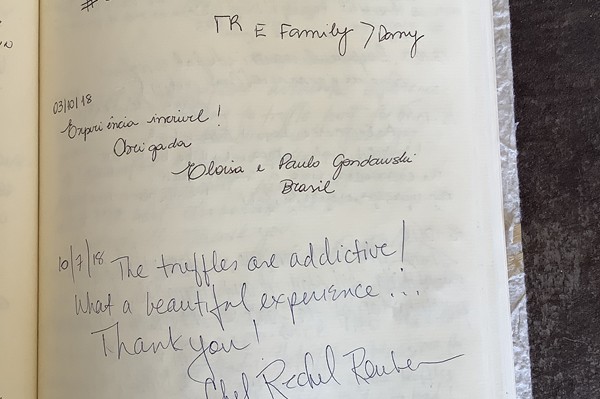 #
TR E Family > Dany
03/10/18
Experiência incrível!
Obrigada
Eloisa e Paulo Gondawski
Brasil
10/7/18 The truffles are addictive!
What a beautiful experience...
Thank you!
Chef Rachel Reuben